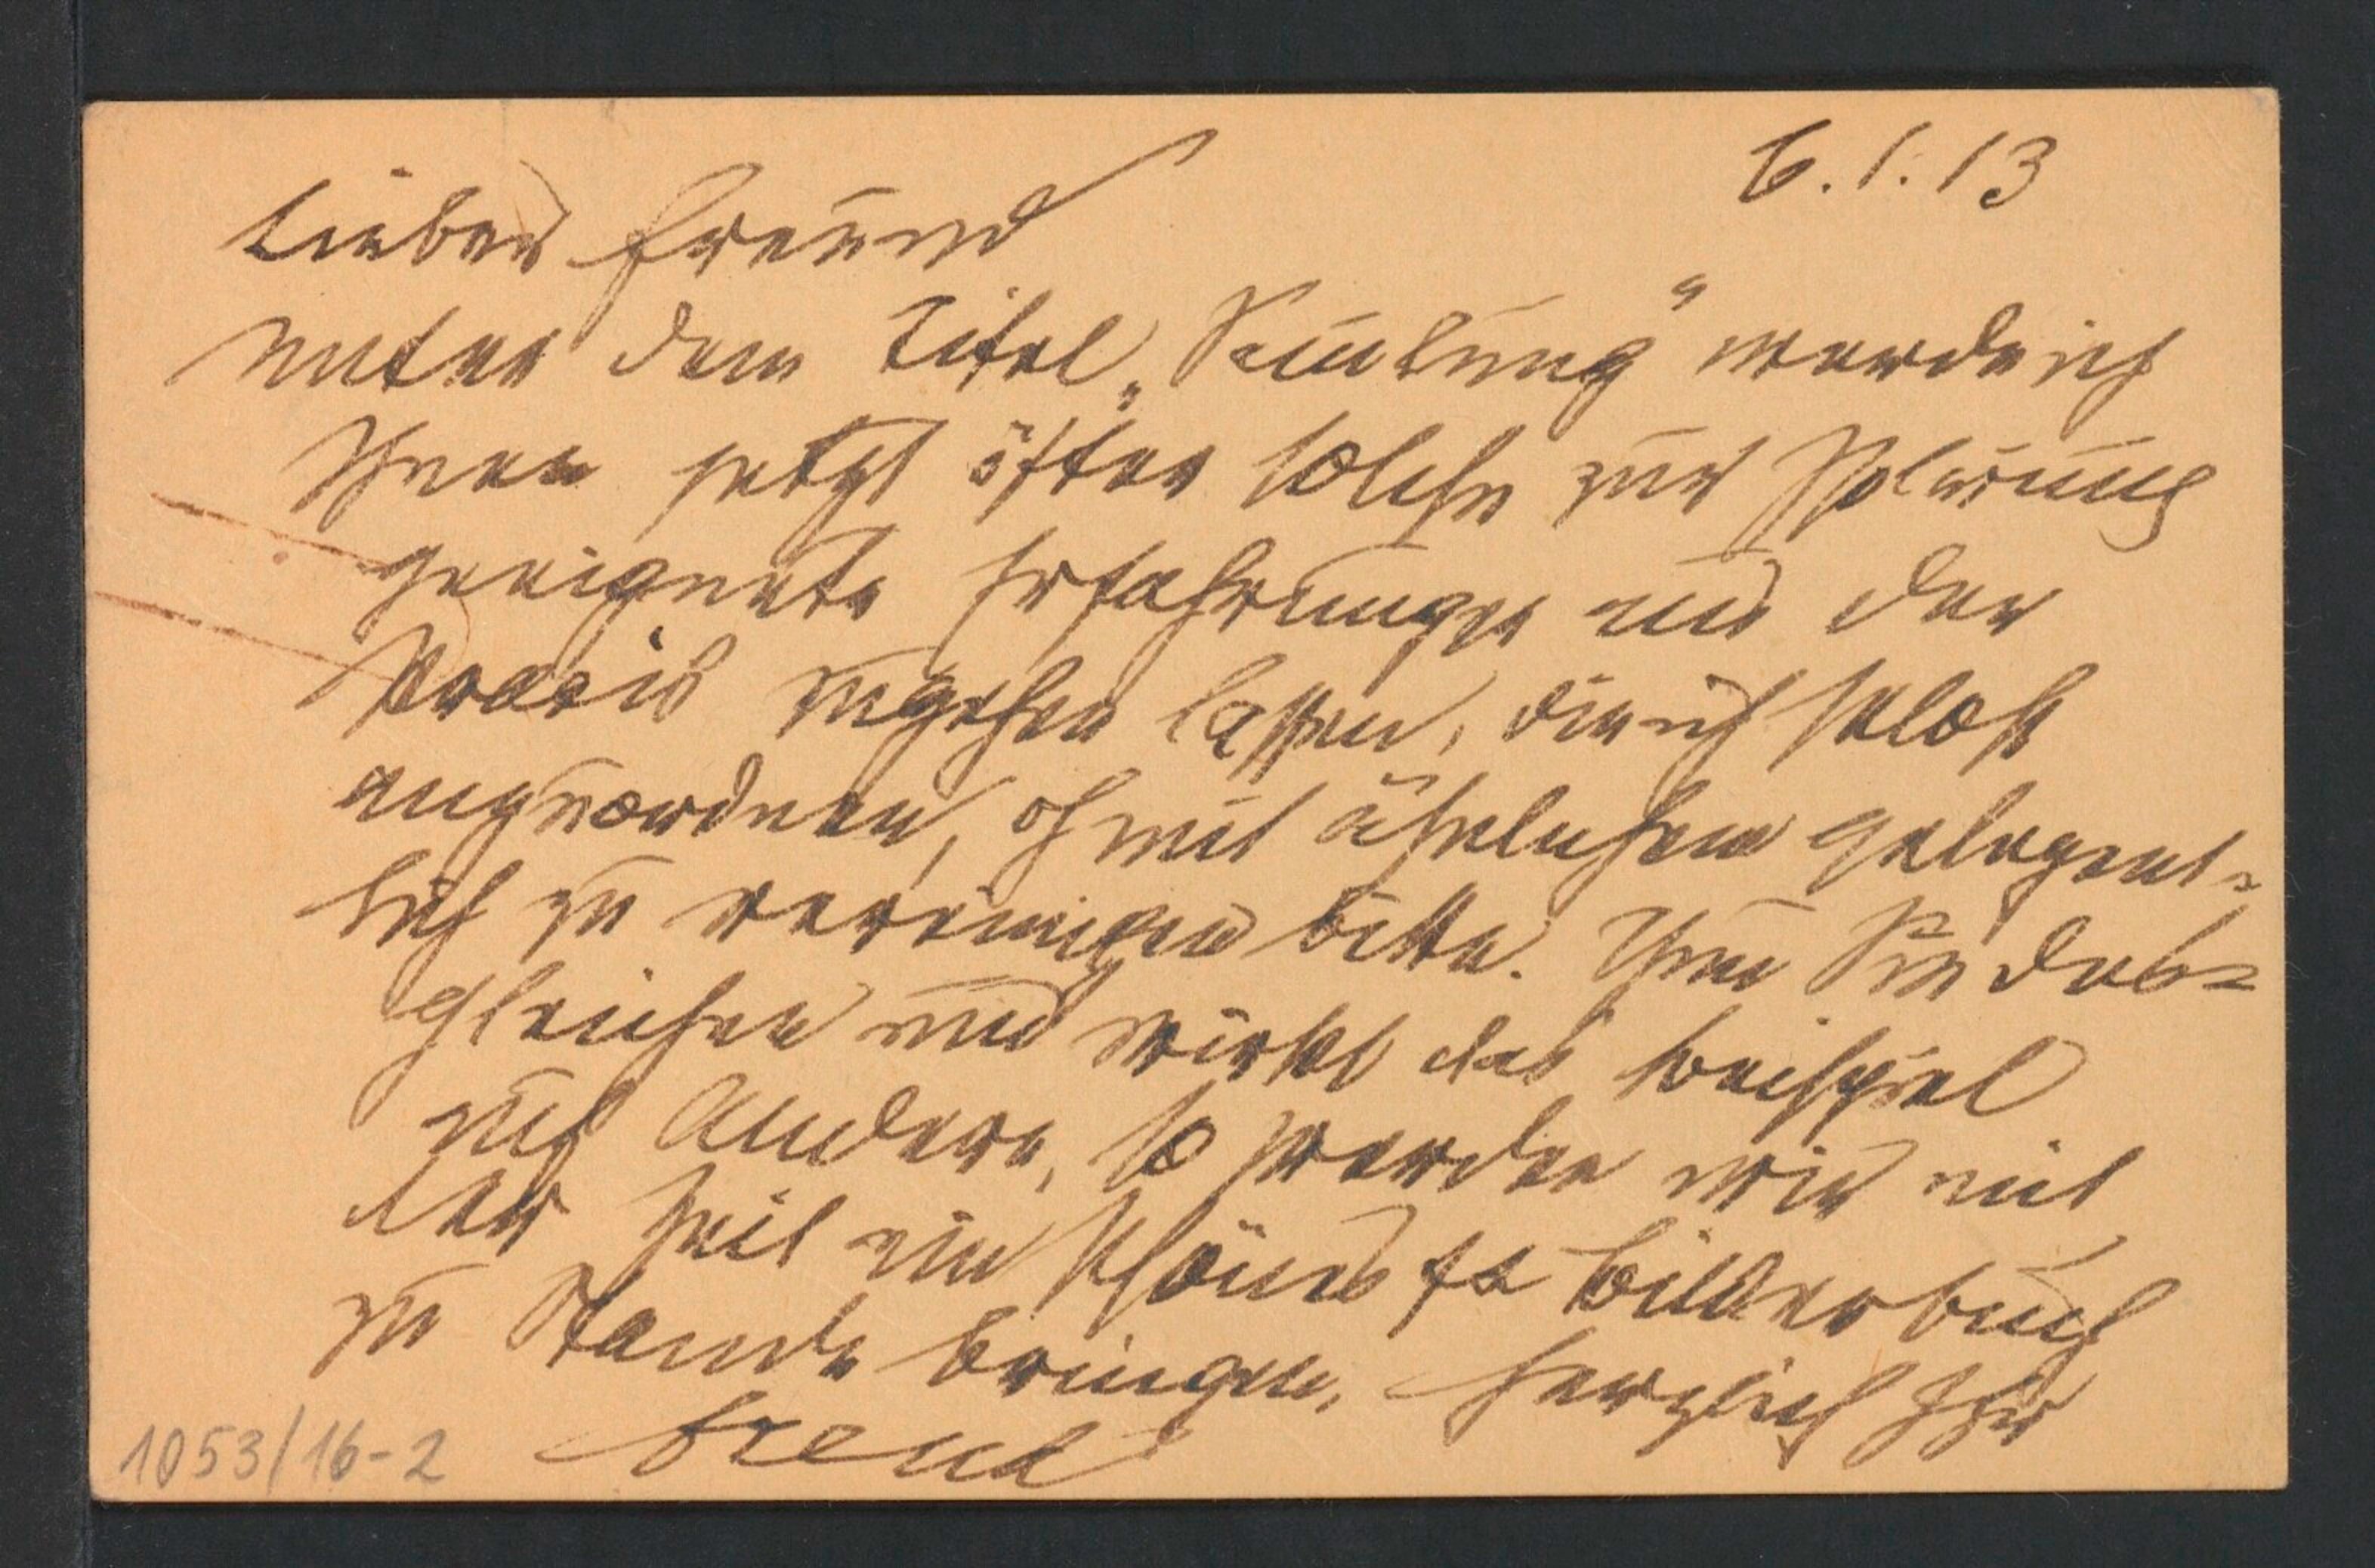 6. 1. 13
Lieber Freund
unter dem Titel „Samlung“ werde ich
Ihnen jetzt öfter solche zur Isolirung
geeignete Erfahrungen aus der
Praxis zugehen lassen, die ich selbst
anzuordnen, oft mit ähnlichen gelegent-
lich zu vereinigen bitte. Thun Sie des-
gleichen und wirkt das Beispiel
auf Andere, so werden wir mit
der Zeit ein schönes Bilderbuch
zu Stande bringen. Herzlich Ihr
1053/16-2